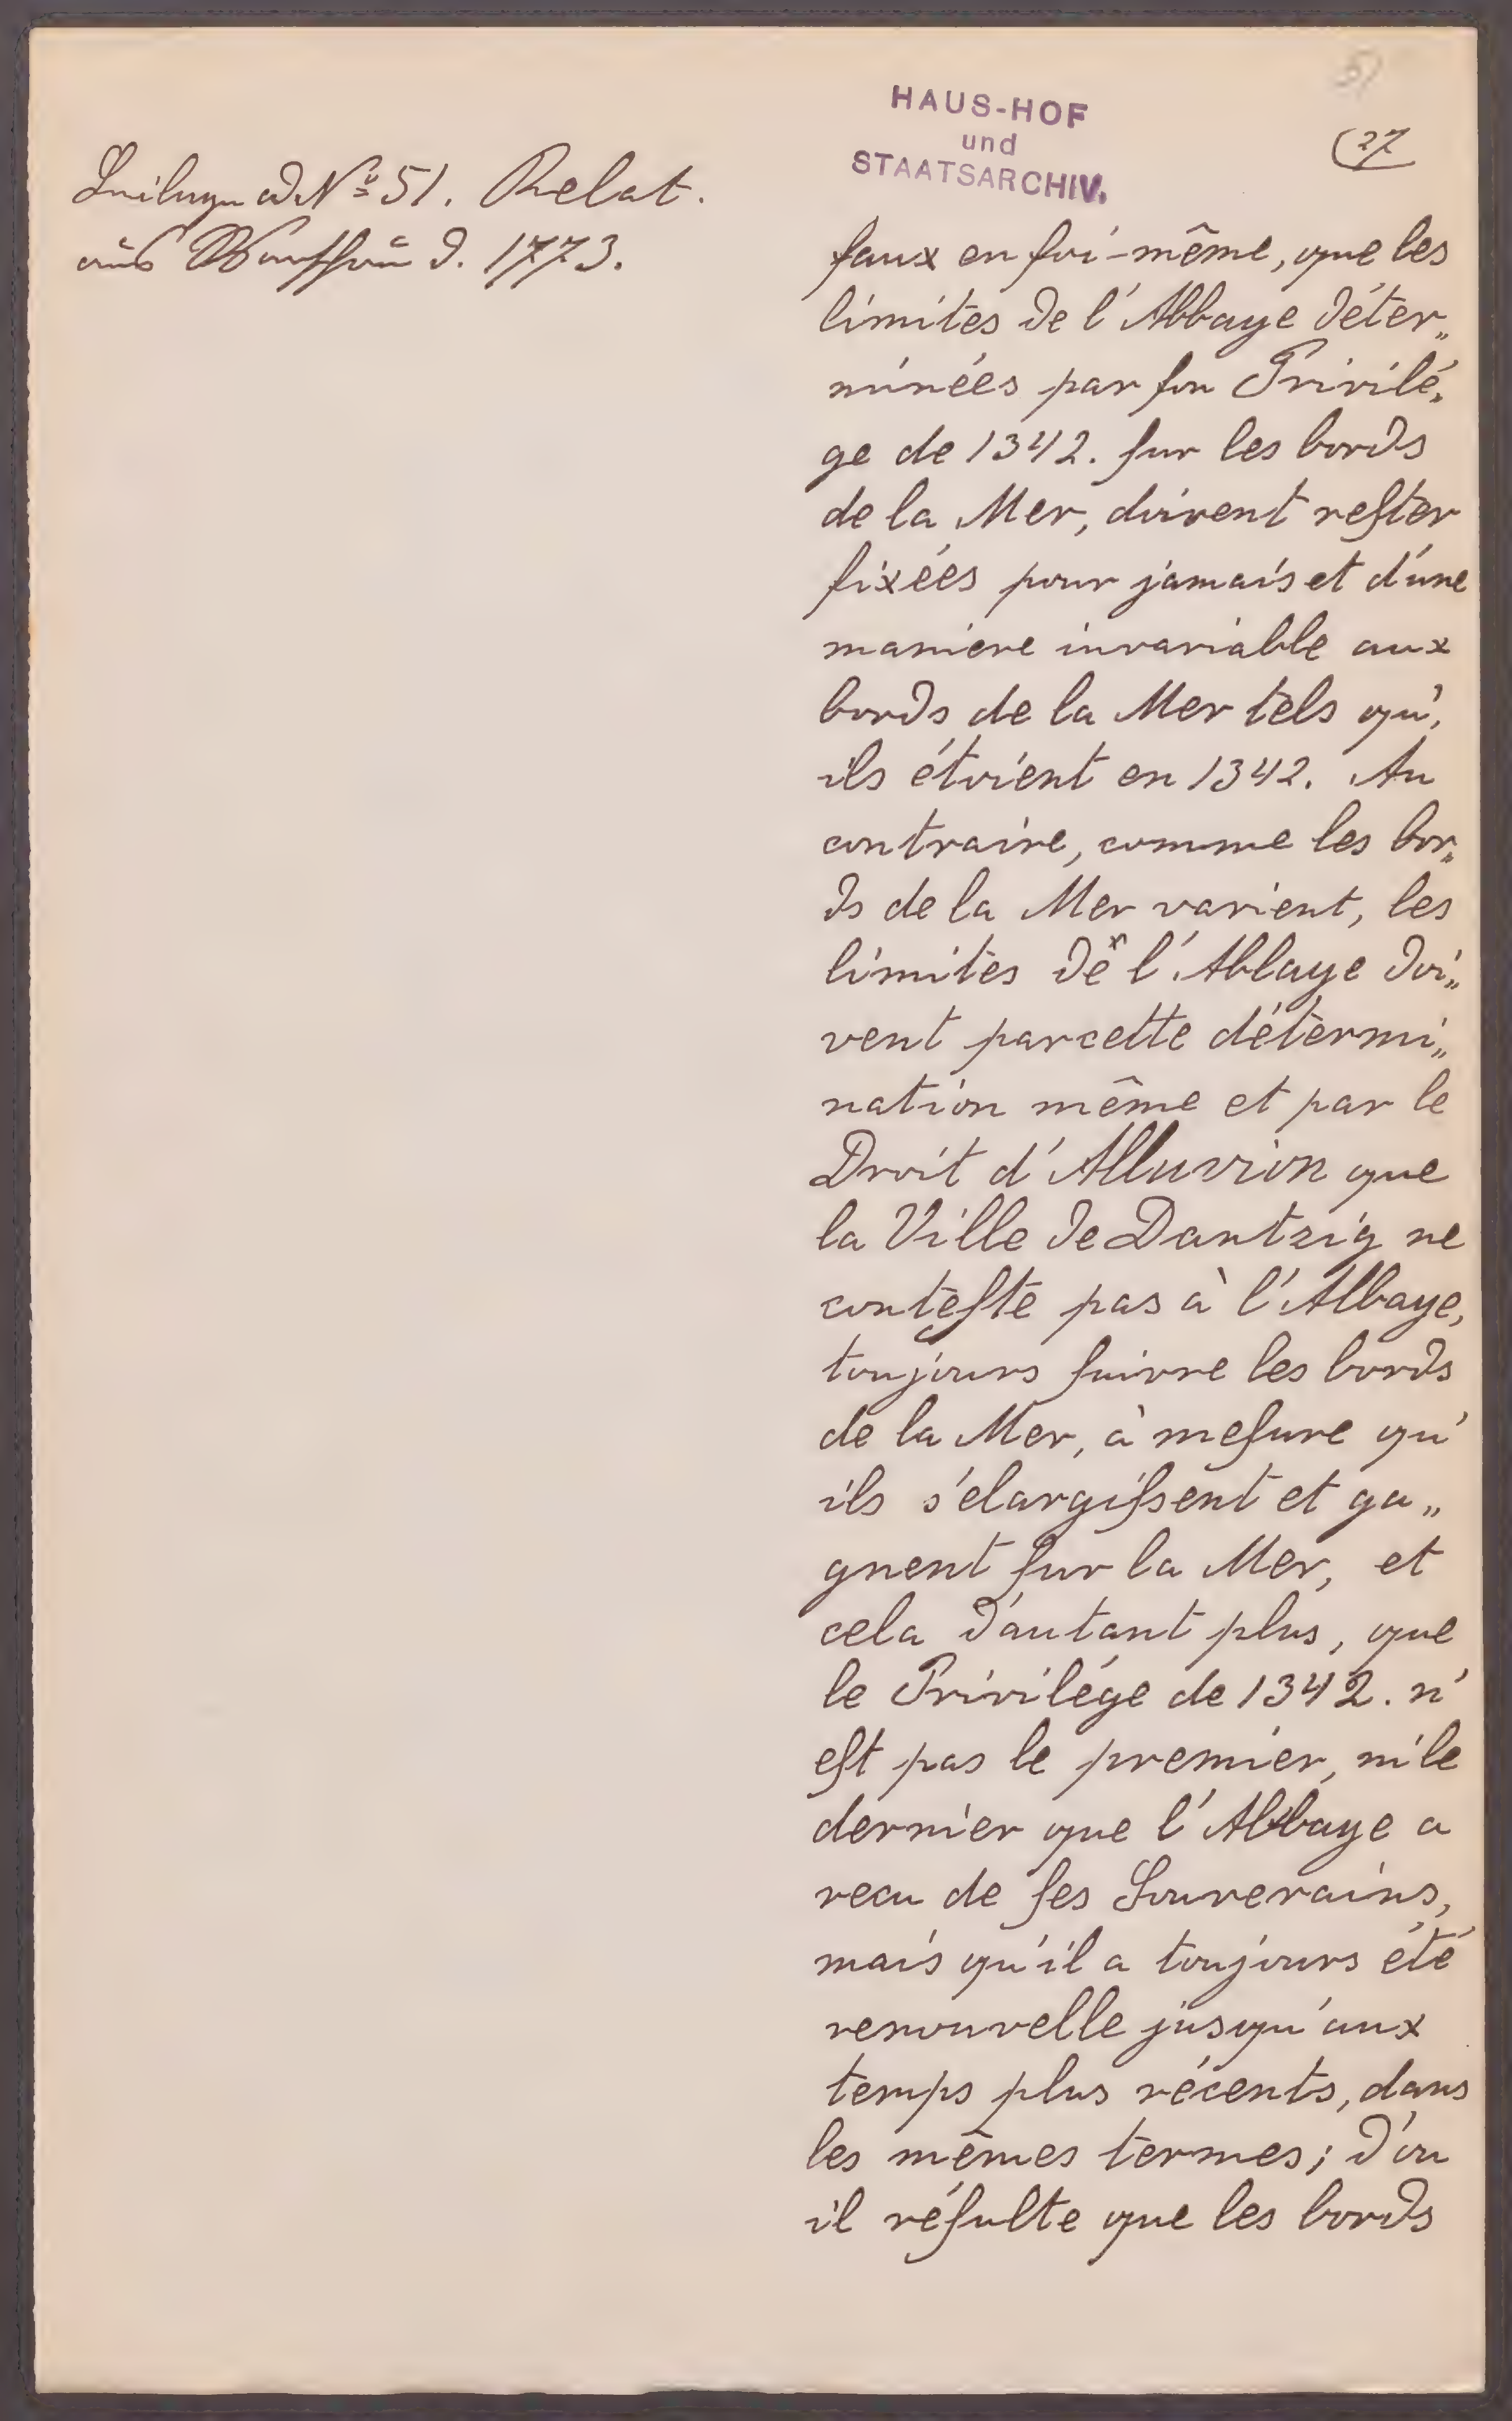 51
HAUS-HOF
und
STAATSARCHIV.
27
Beilage ad Nº 51. Relat.
aus Warschau d. 1773.
faux en soi-même, que les
limites de l'Abbaye déter„
minées par son Privilé„
ge de 1342. sur les bords
de la Mer, doivent rester
fixées pour jamais et d'une
maniere invariable aux
bords de la Mer tels qu'
ils étoient en 1342. Au
contraire, comme les bor„
ds de la Mer varient, les
limites de l'Abbaye doi„
vent par cette détermi„
nation même et par le
Droit d'Alluvion que
la Ville de Dantzig ne
conteste pas à l'Abbaye,
toujours suivre les bords
de la Mer, à mesure qu'
ils s'elargissent et ga„
gnent sur la Mer, et
cela d'autant plus, que
le Privilége de 1342. n'
est pas le premier, ni le
dernier que l'Abbaye a
recu de ses Souverains,
mais qu'il a toujours été
renouvelle jusqu'aux
temps plus récents, dans
les mêmes termes; d'ou
il résulte que les bords